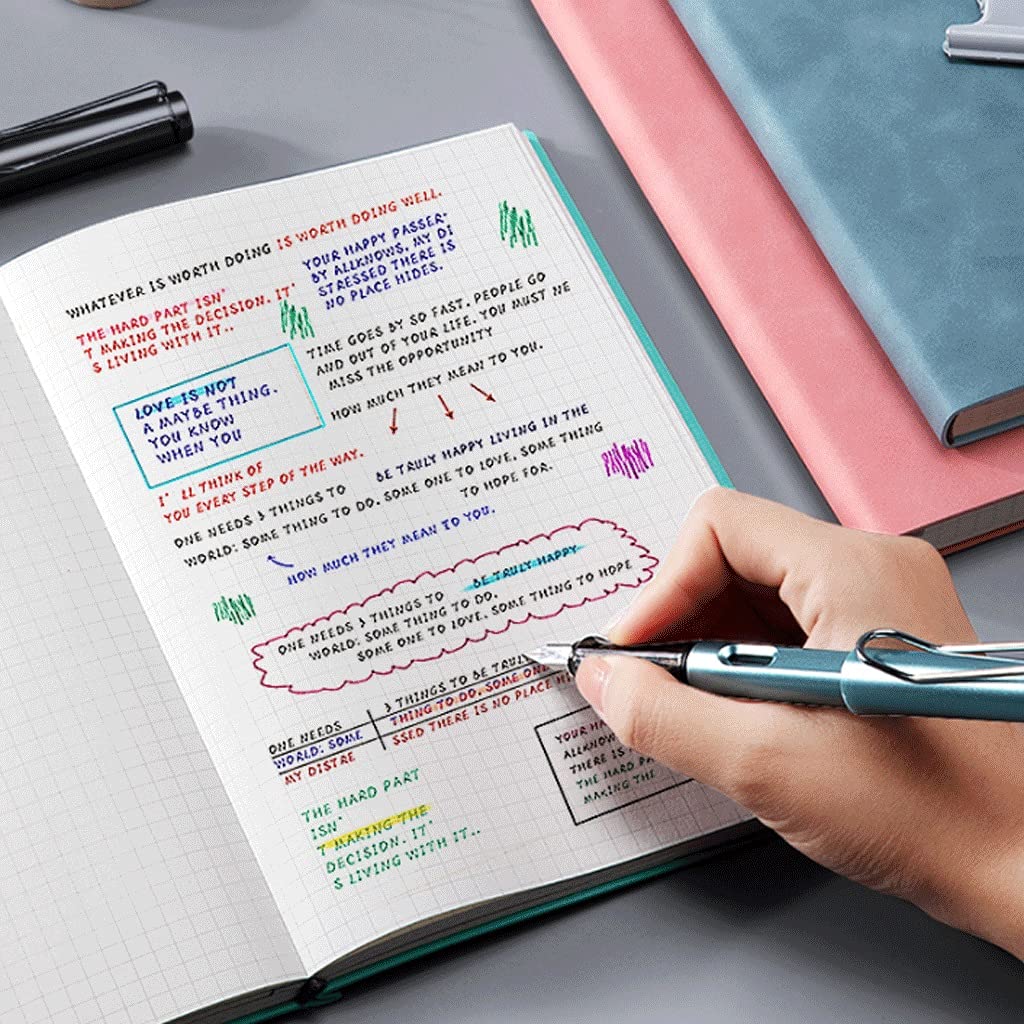 WHATEVER IS WORTH DOING IS WORTH DOING WELL.
THE HARD PART ISN'
T MAKING THE DECISION. IT'
S LIVING WITH IT..
YOUR HAPPY PASSER-
BY ALLKNOWS, MY DI
STRESSED THERE IS
NO PLACE HIDES.
TIME GOES BY SO FAST, PEOPLE GO
AND OUT OF YOUR LIFE. YOU MUST NE
MISS THE OPPORTUNITY
HOW MUCH THEY MEAN TO YOU.
LOVE IS NOT
A MAYBE THING.
YOU KNOW
WHEN YOU
I' LL THINK OF
YOU EVERY STEP OF THE WAY.
ONE NEEDS 3 THINGS TO BE TRULY HAPPY LIVING IN THE
WORLD: SOME THING TO DO. SOME ONE TO LOVE, SOME THING
TO HOPE FOR.
HOW MUCH THEY MEAN TO YOU.
ONE NEEDS 3 THINGS TO BE TRULY HAPPY
WORLD: SOME THING TO DO.
SOME ONE TO LOVE, SOME THING TO HOPE
ONE NEEDS 3 THINGS TO BE TRULY
WORLD: SOME THING TO DO. SOME ONE
MY DISTRE SSED THERE IS NO PLACE
YOUR
THERE IS
THE HARD
MAKING THE
THE HARD PART
ISN'
T MAKING THE
DECISION. IT'
S LIVING WITH IT..